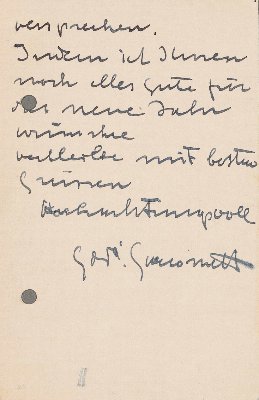 versprechen.
Indem ich Ihnen
noch alles Gute für
das neue Jahr
wünsche
verbleibe mit besten
Grüssen
Hochachtungsvoll
Giacometti